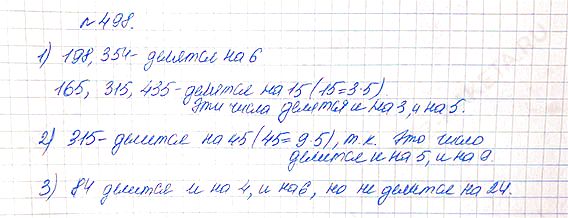 №498.
1) 198, 354- делятся на 6
165, 315, 435- делятся на 15 (15=3·5)
Эти числа делятся и на 3, и на 5.
2) 315- делится на 45 (45=9·5), т.к. это число
делится и на 5, и на 9.
3) 84 делится и на 4, и на 6, но не делится на 24.